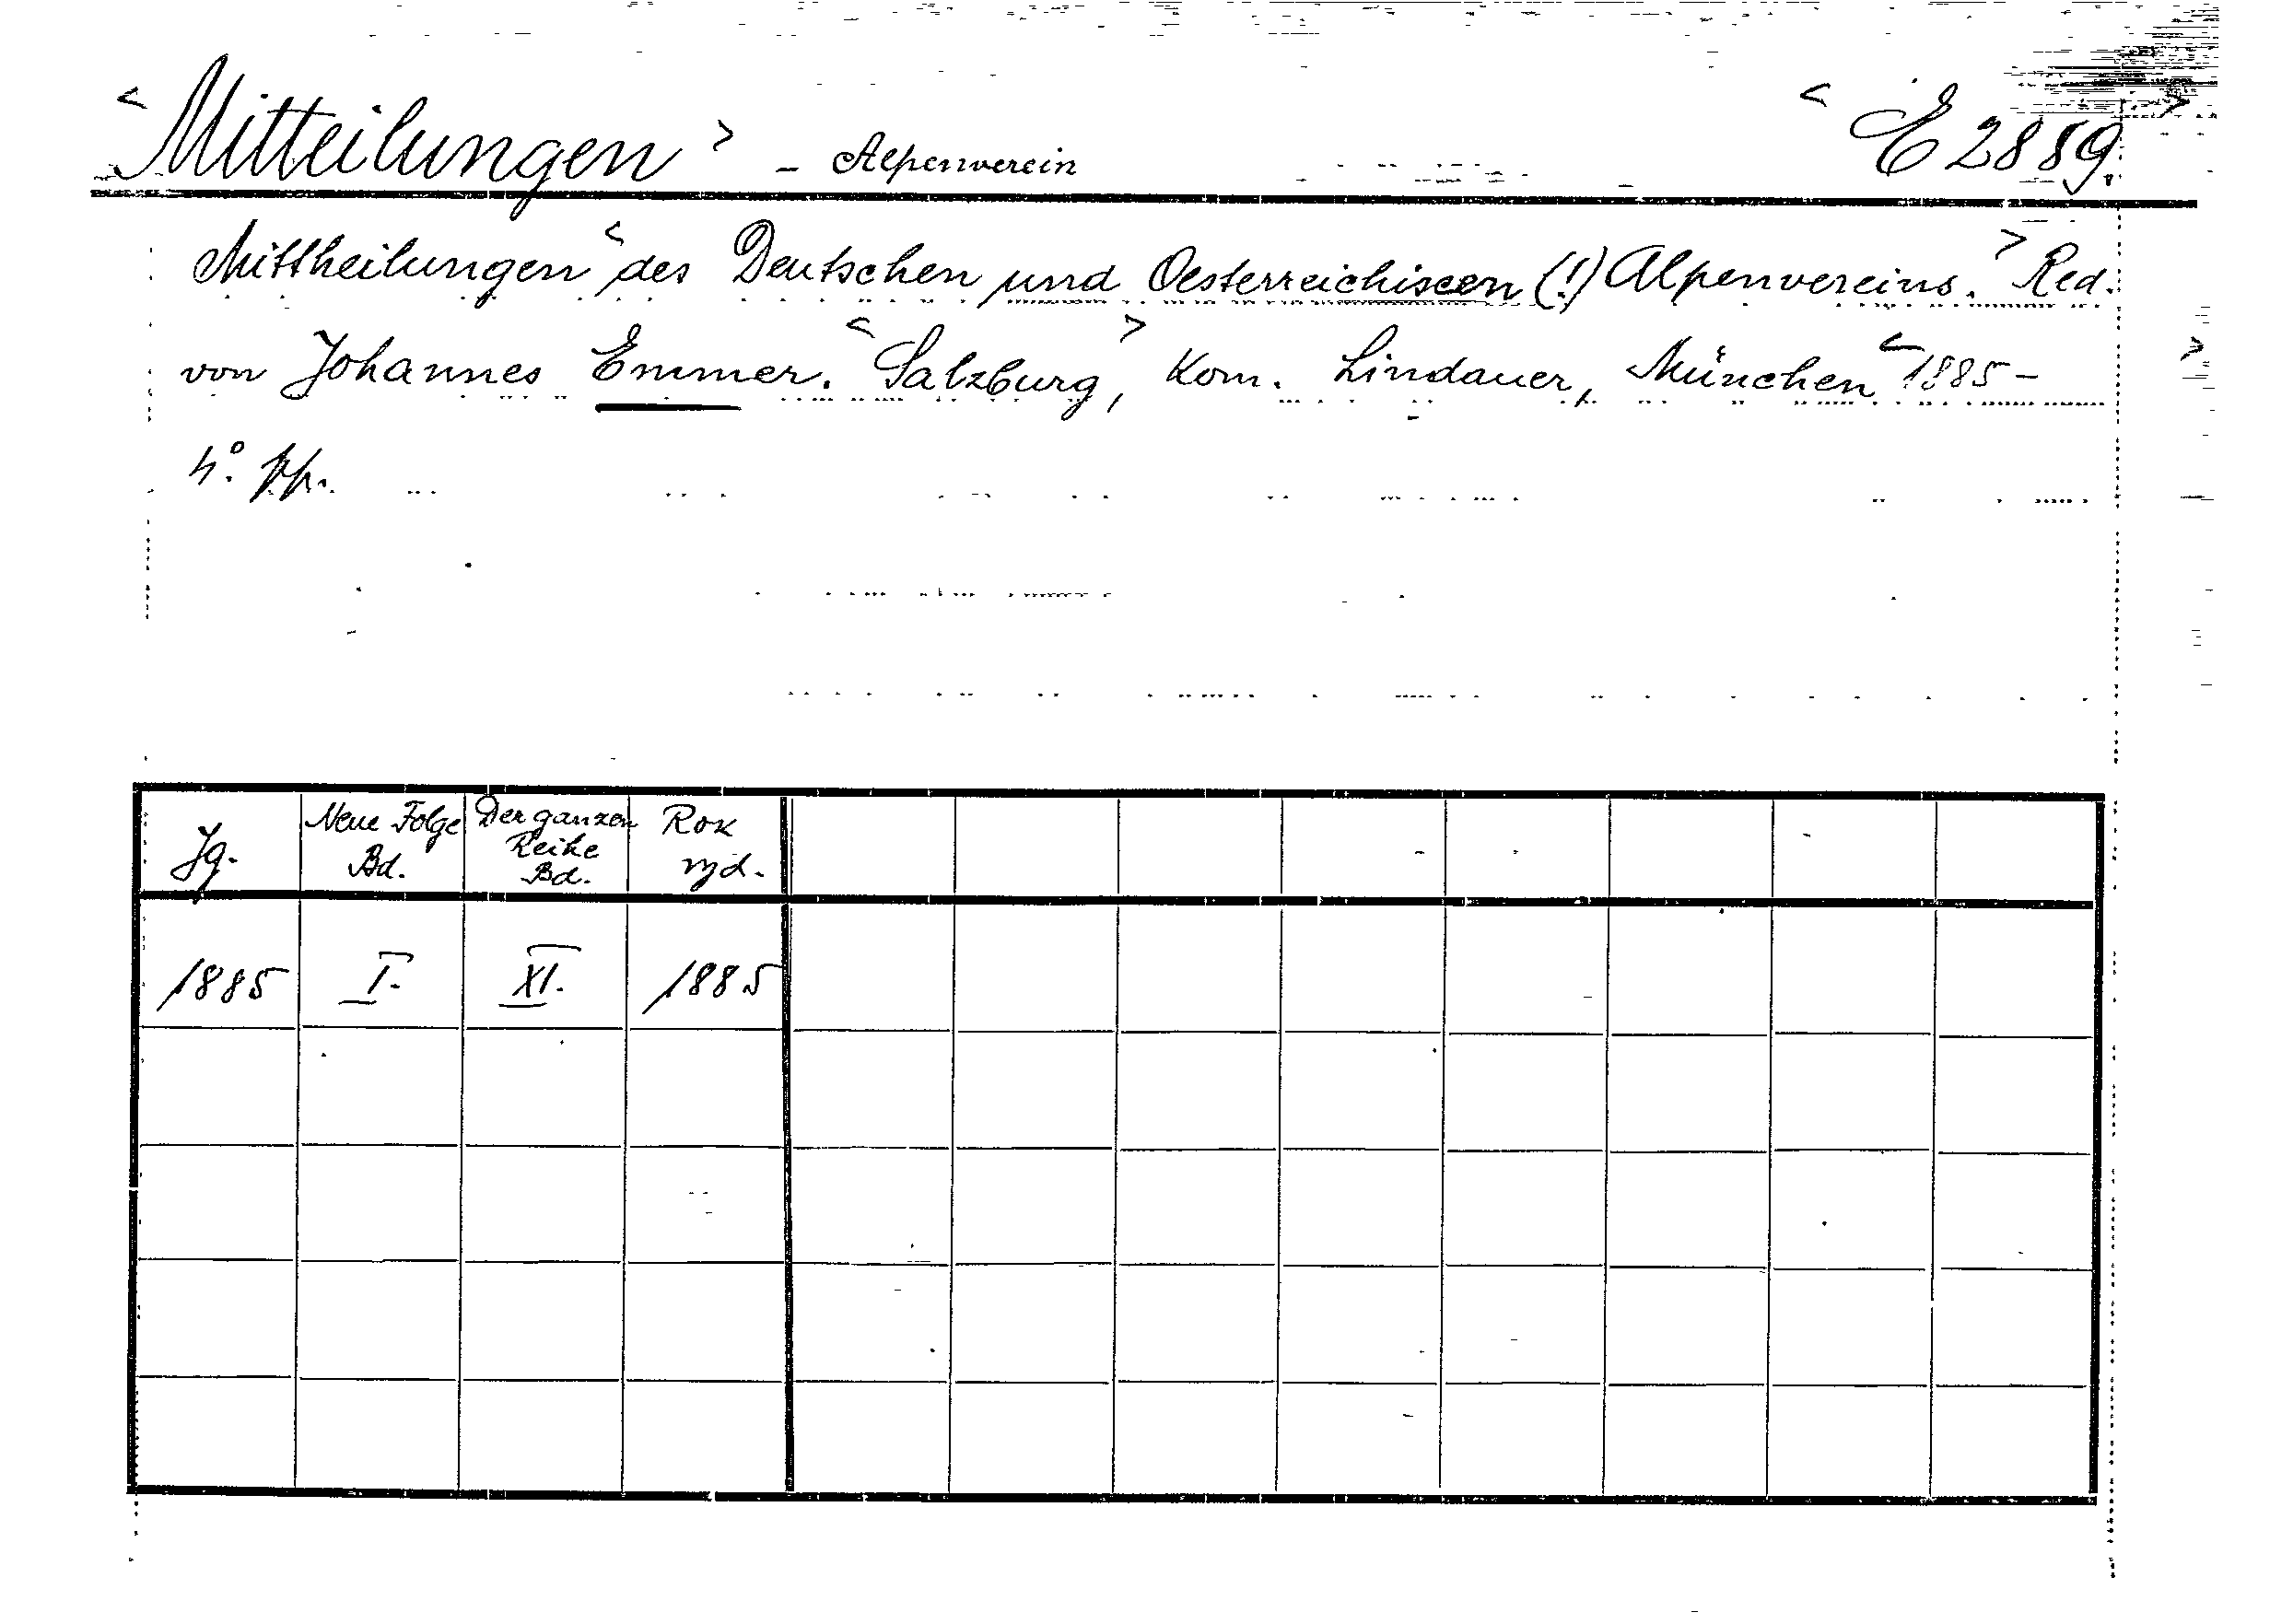 < Mitteilungen > - Alpenverein < E 2889. >
Mittheilungen < des Deutschen und Oesterreichiscen (!) Alpenvereins. > Red.
von Johannes Emmer. < Salzburg >, Kom. Lindauer, München < 1885- >
4°. pp.
Jg. Neue Folge Bd. Der ganzen Reihe Bd. Rok vyd.
1885 I. XI. 1885